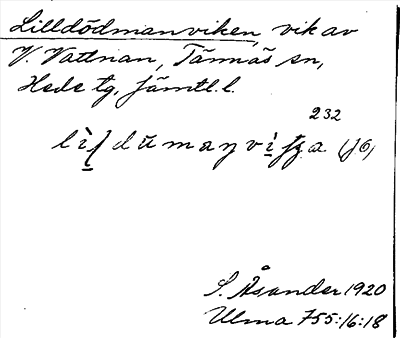 Lilldödmanviken, vik av
V. Vattnan, Tännäs sn,
Hede tg, Jämtl. l.
232
(JÖ)
S. Åsander 1920
Ulma 755:16:18